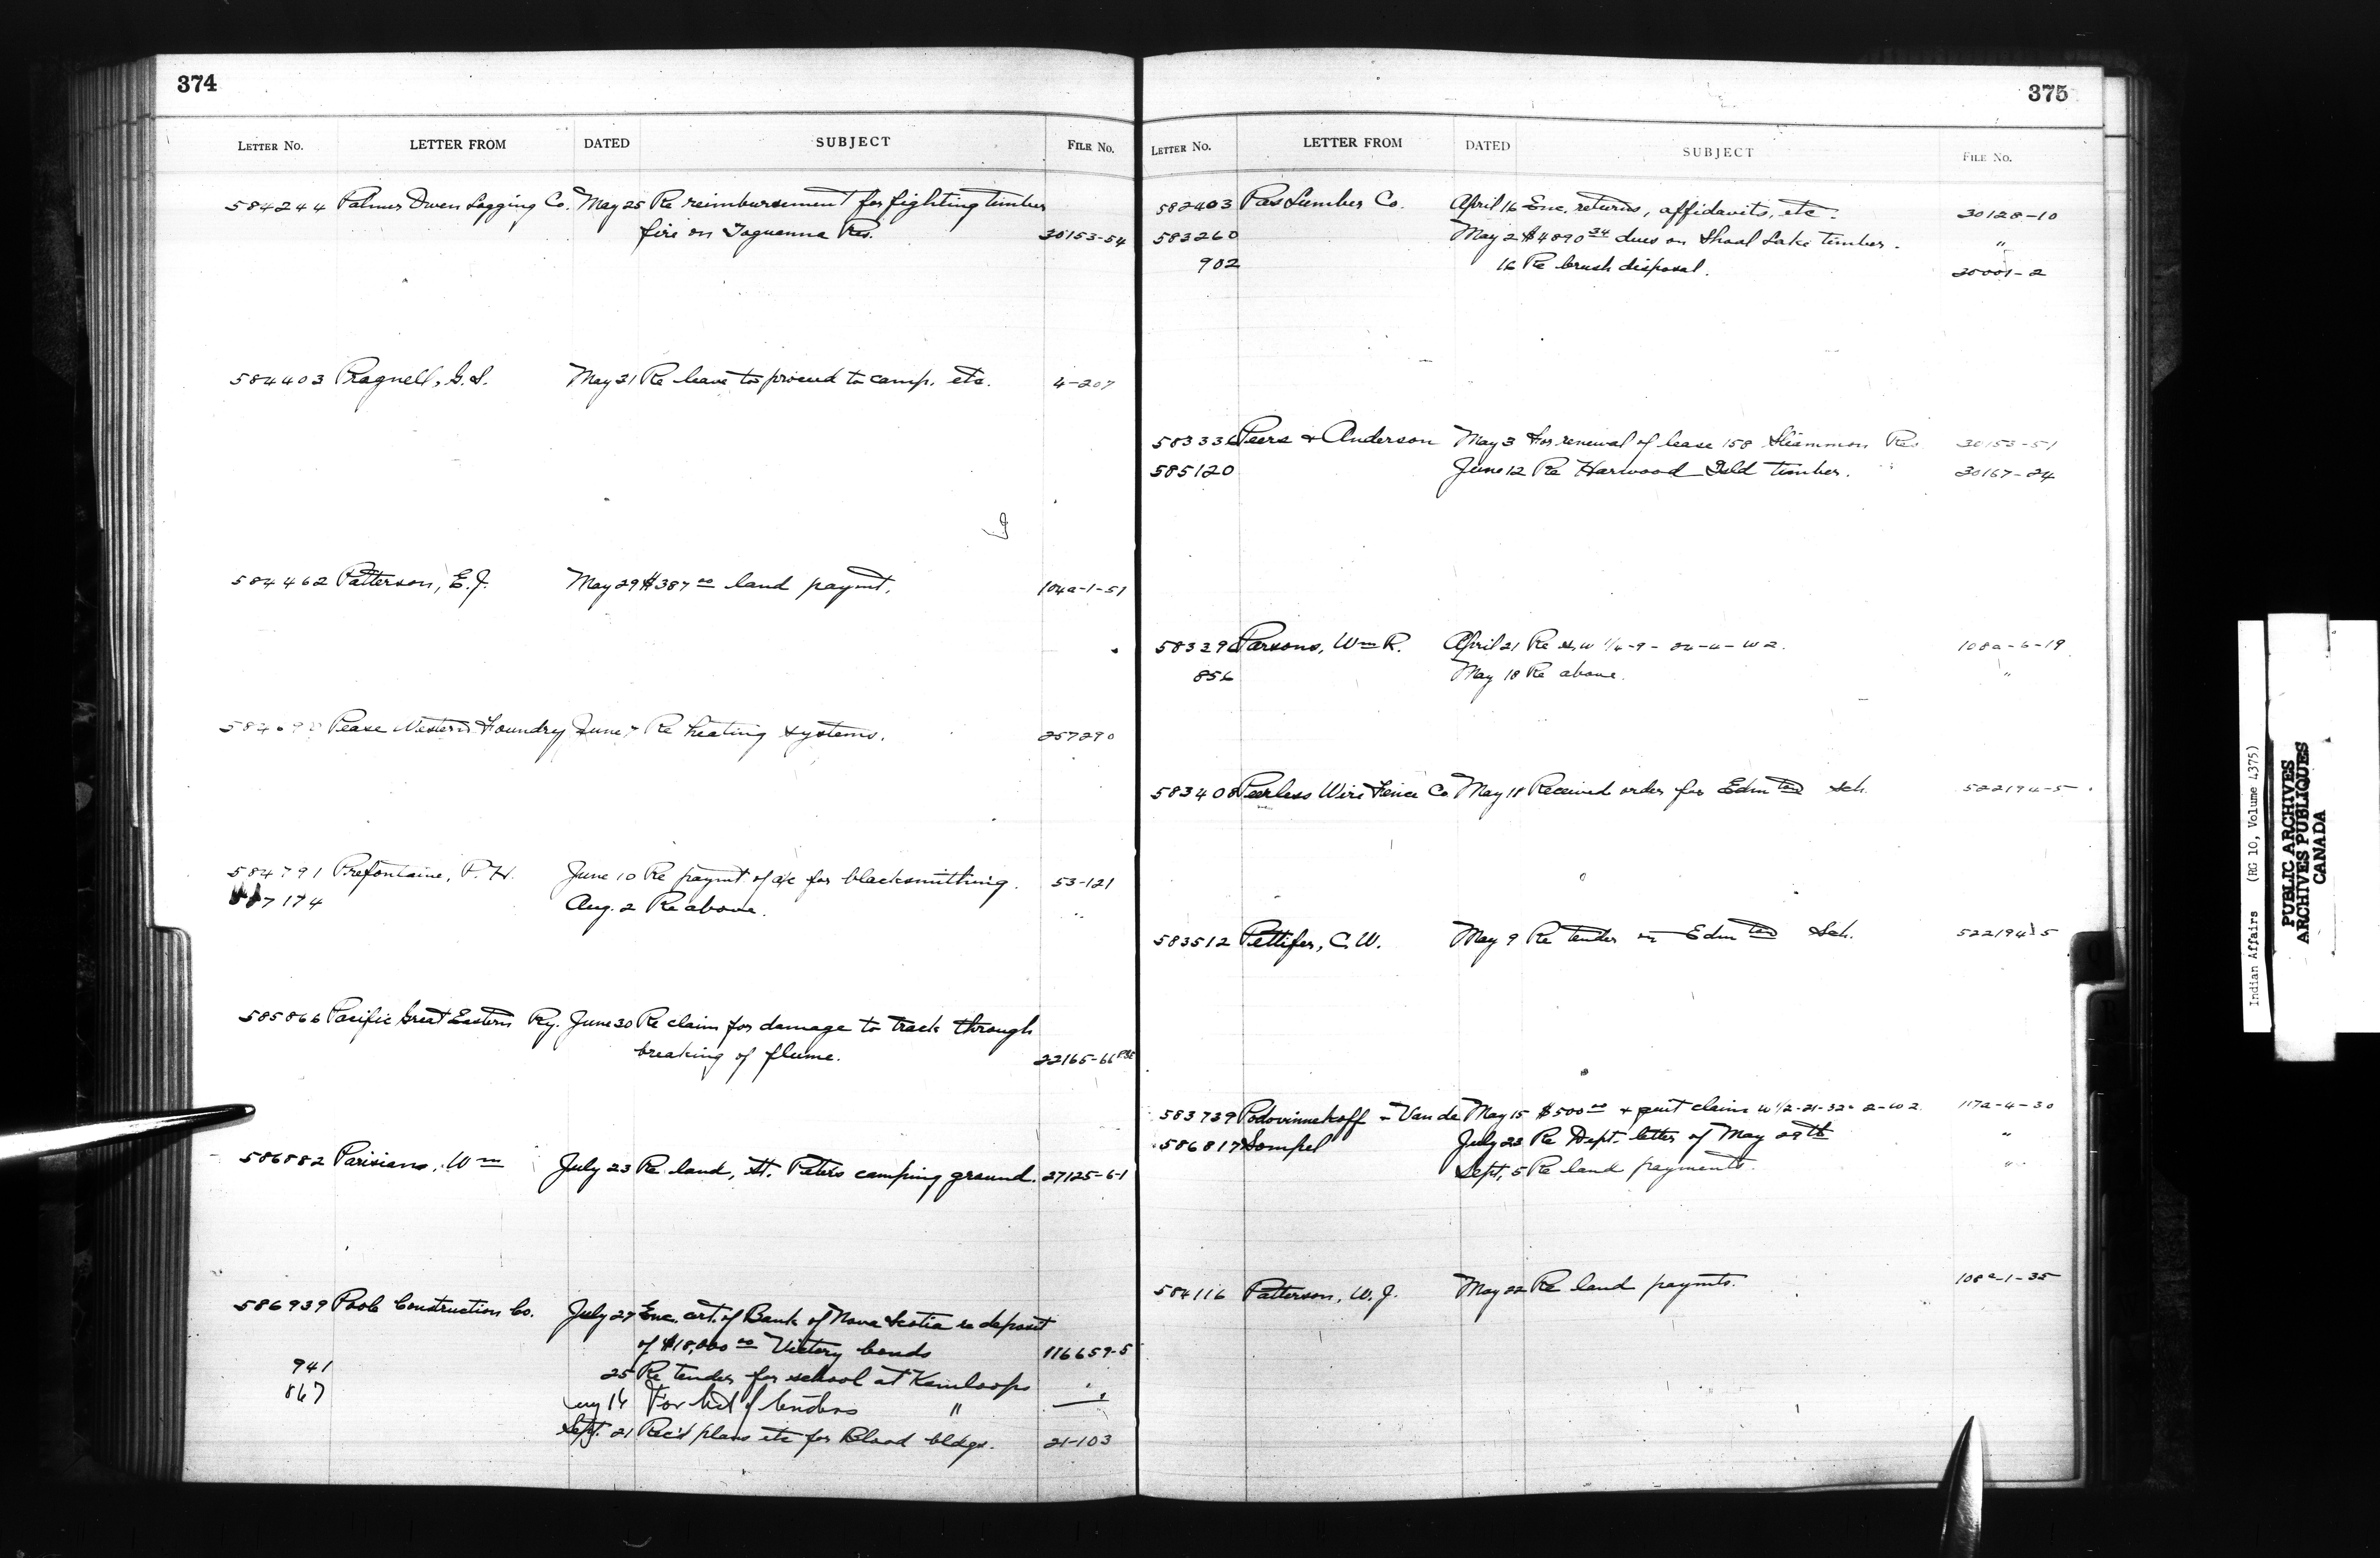 374
LETTER NO. LETTER FROM DATED SUBJECT FILE NO.
584244 Palmer Owen Logging Co. May 25 Re reimbursement for fighting timber
fire on Res. 30153-54
584403 Pragnell, G.S. May 31 Re leave to proceed to camp, etc. 4-207
584462 Patterson, E.J. May 29 $387 00 land paymt. 104a-1-51
Pease Western Foundry June 7 Re heating systems. 257290
584791 Prefontaine, P.H. June 10 Re paymt of a/c for blacksmithing. 53-121
7174 Aug. 2 Re above. "
585866 Pacific Great Eastern Ry. June 30 Re claim for damage to track through
breaking of flume. 22165-66 PGE
586882 Parisians, Wm July 23 Re land, St. Peters camping ground. 27125-6-1
586939 Poole Construction Co. July 27 Enc. cert. of Bank of Nova Scotia re deposit
of $18,000 00 Victory bonds 116659-5
941 25 Re tender for school at Kamloops "
867 Aug 14 For list of tenders " "
Sept. 21 Rec'd plans etc for Blood bldgs. 21-103
375
LETTER NO. LETTER FROM DATED SUBJECT FILE NO.
582403 Pas Lumber Co. April 16 Enc. returns, affidavits, etc. 30128-10
583260 May 2 $4890 34 dues on Shoal Lake timber. "
902 16 Re brush disposal. 30001-2
583336 Peers & Anderson May 3 For renewal of lease 158 Sliammon Res 30153-51
585120 June 12 Re Harwood Isld timber. 30167-24
Parsons, Wm R. April 21 Re 108a-6-19
856 May 18 Re above. "
583408 Peerless Wire Fence Co May 18 Received order for Edmton Sch. 522194-5
583512 Pettifer, C.W. May 9 Re tender Edmton Sch. 522194-5
583739 Podovinnekoff - Van de May 15 $500 00 & quit claim W 1/2-21-32-2-W2 117a-4-30
586817 Sompel July 23 Re Dept. letter of May 29th "
Sept. 5 Re land payments. "
584116 Patterson, W.J. May 22 Re land paymts. 108a-1-35
Indian Affairs (RG 10, Volume 4375)
PUBLIC ARCHIVES
ARCHIVES PUBLIQUES
CANADA